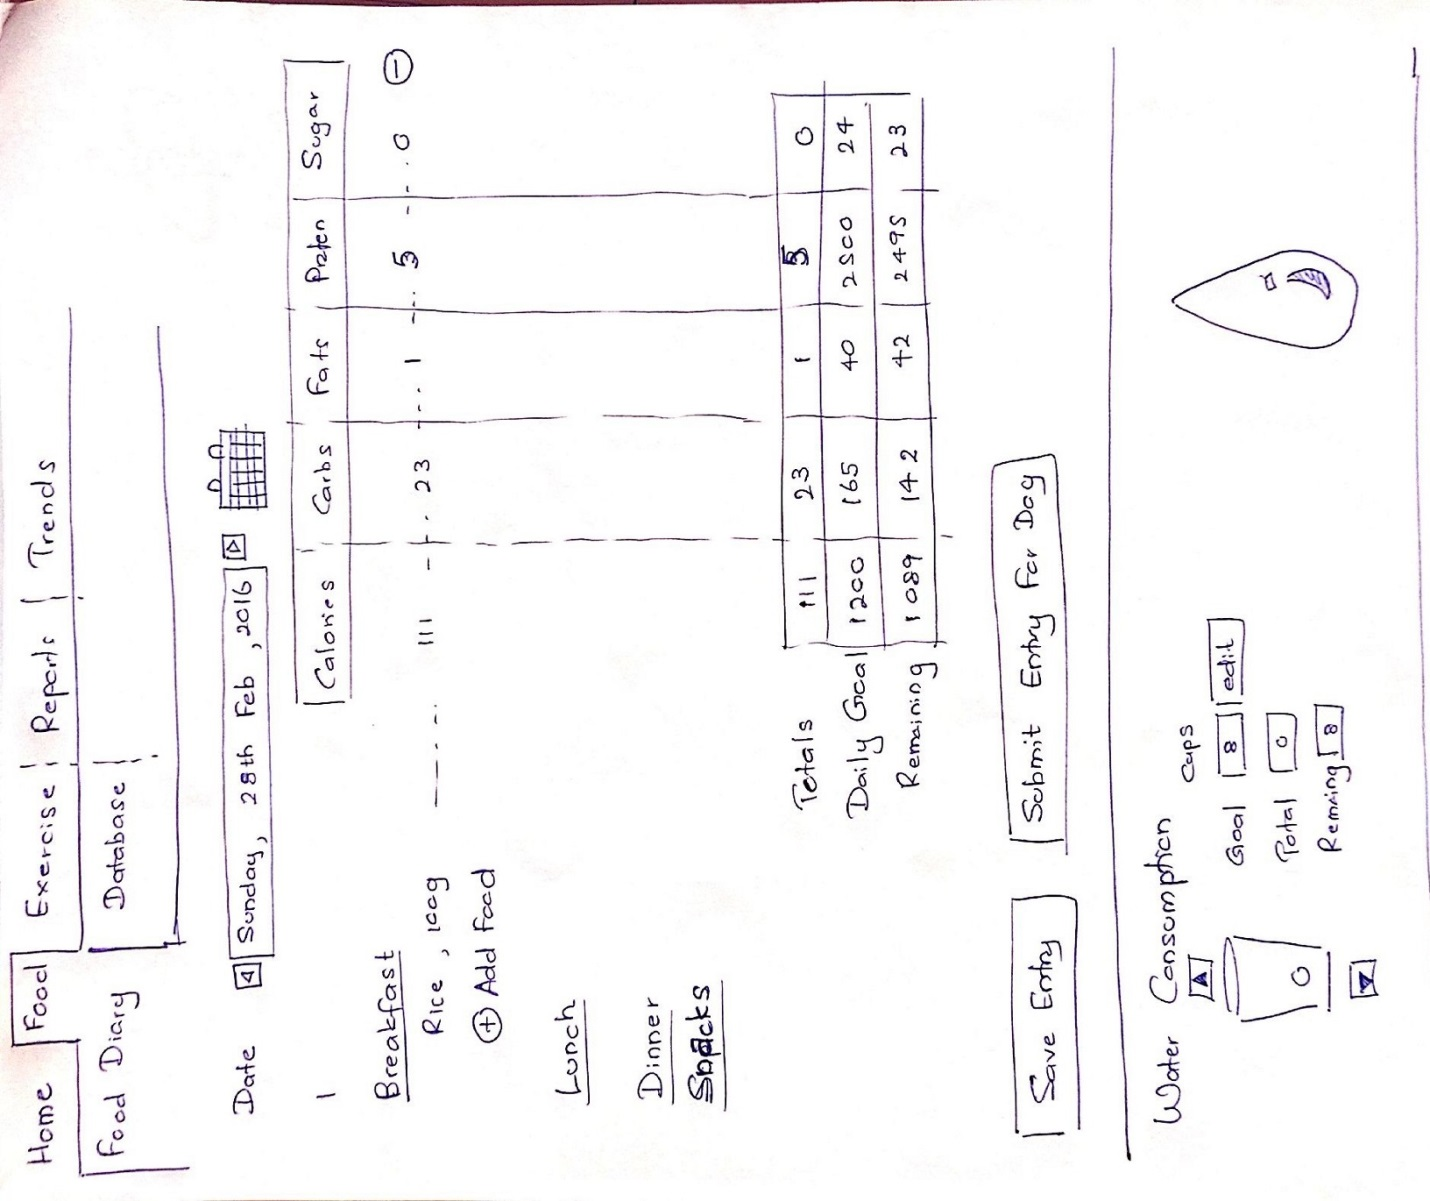 Home Food Exercise Reports Trends
Food Diary Database
Date Sunday, 28th Feb, 2016
Calories Carbs Fats Proten Sugar
Breakfast
Rice, 100g 111 23 1 5 0
Add Food
Lunch
Dinner
Snacks
Totals 111 23 1 5 0
Daily Goal 1200 165 40 2500 24
Remaining 1089 142 42 2495 23
Save Entry Submit Entry For Day
Water Consumption
Cups
Goal 8 edit
0 Total 0
Remaing 8